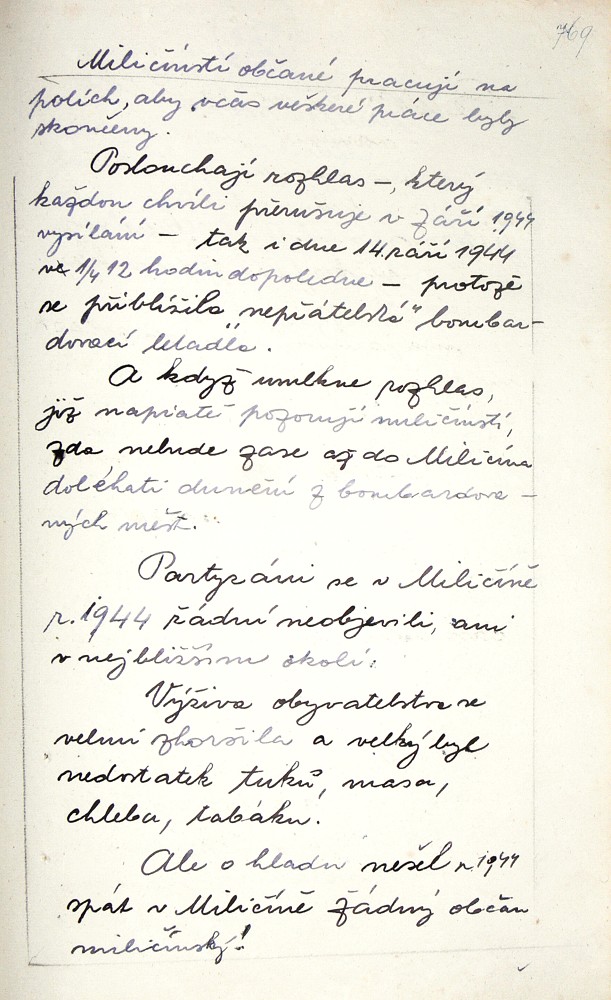 769
Miličínstí občané pracují na
polích, aby včas veškeré práce byly
skončeny.
Poslouchají rozhlas –, který
každou chvíli přerušuje v září 1944
vysílání – tak i dne 14. září 1944
ve 1/4 12 hodin dopoledne – protože
se přiblížila nepřátelská" bombar-
dovací letadla.
A když umlkne rozhlas,
již napjatě pozorují miličínstí,
zda nebude zase až do Miličína
doléhati dunění z bombardova-
ných měst.
Partyzáni se v Miličíně
r. 1944 žádní neobjevili, ani
v nejbližším okolí.
Výživa obyvatelstva se
velmi zhoršila a velký byl
nedostatek tuků, masa,
chleba, tabáku.
Ale o hladu nešel r. 1944
spát v Miličíně žádný občan
miličínský!